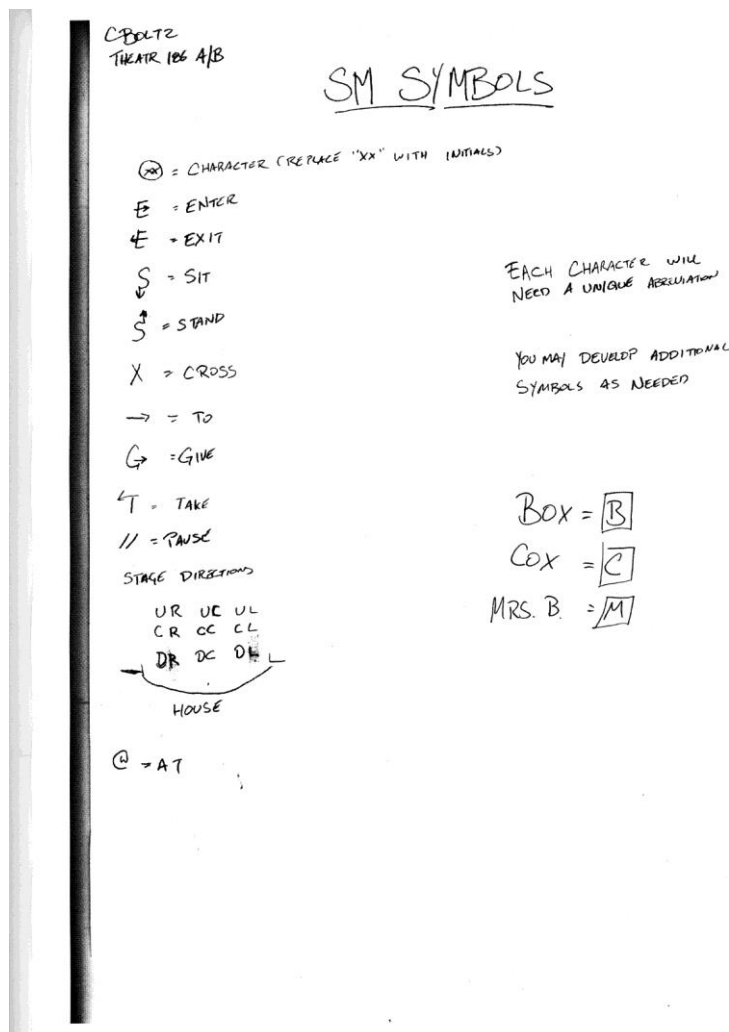 CBOLTZ
THEATR 186 A/B
SM SYMBOLS
XX = CHARACTER (REPLACE "XX" WITH INITIALS)
E = ENTER
E = EXIT
S = SIT
S = STAND
X = CROSS
→ = TO
G→ = GIVE
T = TAKE
// = PAUSE
STAGE DIRECTIONS
UR UC UL
CR CC CL
DR DC DL
HOUSE
@ = AT
EACH CHARACTER WILL
NEED A UNIQUE ABREVIATION
YOU MAY DEVELOP ADDITIONAL
SYMBOLS AS NEEDED
BOX = B
COX = C
MRS. B. = M